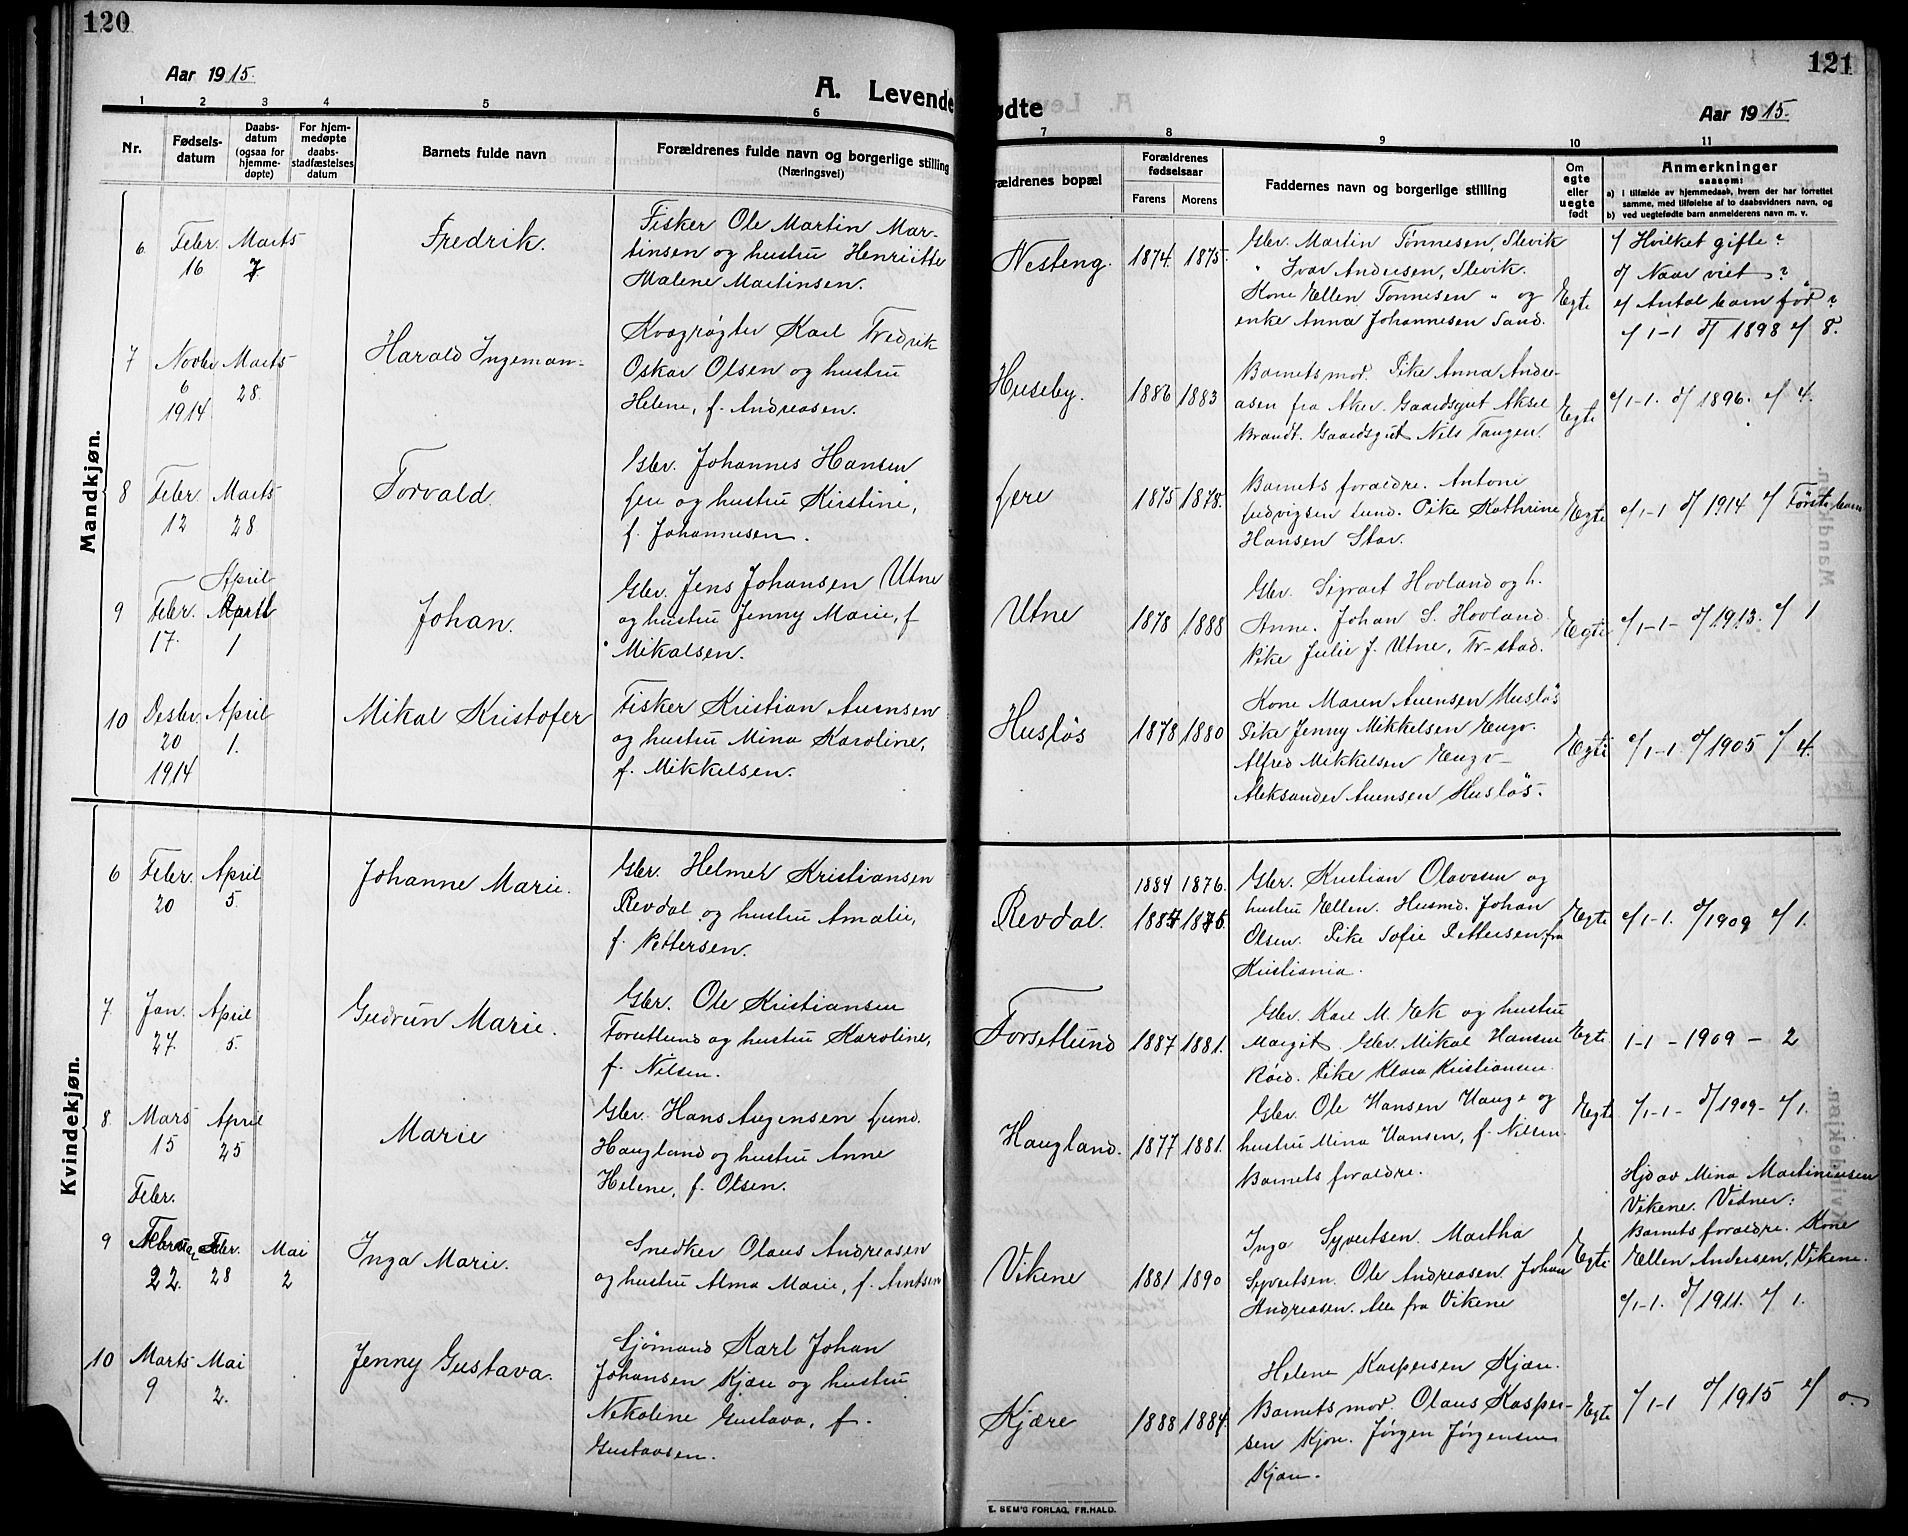 120
Aar 1915.
A. Levende
1 2 3 4 5 6
Nr.
Fødsels-
datum
Daabs-
datum
(ogsaa for
hjemme-
døpte)
For hjem-
medøpte
daabs-
stadfæstelses
datum
Barnets fulde navn
Forældrenes fulde navn og borgerlige stilling
(Næringsvei)
Mandkjøn.
6 Febr. Marts Fredrik. Fisker Ole Martin Mar-
16 7 tinsen og hustru Henriette
Malene Martinsen.
7 Novbr Marts Harald Ingeman- Kvægrøgter Karl Fredrik
6 28. Oskar Olsen og hustru
1914 Helene, f. Andreasen.
8 Febr. Marts Torvald. Gbr. Johannes Hansen
12 28 Lere og hustru Kristine,
f. Johannesen.
April
9 Febr. April Johan. Gbr. Jens Johansen Utne
17. 1 og hustru Jenny Marie, f
Mikalsen.
10 Desbr. April Mikal Kristofer Fisker Kristian Auensen
20 1. og hustru Mina Karoline,
1914 f. Mikkelsen.
Kvindekjøn.
6 Febr. April Johanne Marie. Gbr. Helmer Kristiansen
20 5. Revdal og hustru Amalie,
f. Pettersen.
7 Jan. April Gudrun Marie. Gbr. Ole Kristiansen
27. 5. Forsetlund og hustru Karoline,
f. Nilsen.
8 Mars April Marie Gbr. Hans Augensen Lund.
15 25 Haugland og hustru Anne
Helene, f. Olsen.
Febr.
9 Febr. Mai Inga Marie. Snedker Olaus Andreasen
22. 28 2 og hustru Alma Marie, f. Arntsen
10 Marts Mai Jenny Gustava. Sjømand Karl Johan
9 2. Johansen Kjære og hustru
Nikoline Gustava, f.
Gustavsen.
121
Aar 1915.
ødte
7 8 9 10 11
rældrenes bopæl
Forældrenes
fødselsaar
Farens Morens
Faddernes navn og borgerlige stilling
Om
egte
eller
uegte
født
Anmerkninger
saasom:
a) I tilfælde av hjemmedaab, hvem der har forrettet
samme, med tilføielse af to daabsvidners navn, og
b) ved uegtefødte barn anmelderens navn m. v.
Nesteng. 1874. 1875. Gbr. Martin Tønnesen, Slevik c/ Hvilket gifte?
" Ivar Andersen, Slevik. d/ Naar viet?
Kone Ellen Tønnesen " og Egte e/ Antal barn før?
enke Anna Johannesen Sand. c/ 1-1 d/ 1898 e/ 8.
Huseby. 1886 1883 Barnets mor. Pike Anna Andre-
asen fra Aker. Gaardsgut Aksel Egte c/1-1. d/ 1896. e/ 4.
Brandt. Gaardsgut Nils Tangen.
Lere 1875 1878. Barnets forældre. Antoni
Ludvigsen Lund. Pike Kathrine Egte c/1-1 d/ 1914 e/ Første barn
Hansen Stor.
Utne 1878 1888 Gbr. Sigvart Hovland og h.
Anne. Johan S. Hovland. Egte c/1-1- d/1913. e/ 1
Pike Julie J. Utne, Fr-stad.
Husløs 1878 1880 Kone Maren Auensen Husløs
Pike Jenny Mikkelsen Engv. Egte c/1-1. d/1905 e/ 4.
Alfred Mikkelsen Engv-
Aleksander Auensen Husløs.
Revdal. 1884 1876. Gbr. Kristian Olavesen og
hustru Ellen. Husmd. Johan Egte c/1-1. d/1909 e/1.
Olsen. Pike Sofie Pettersen, fra
Kristiania.
Forsetlund 1887 1881. Gbr. Karl M. Ek og hustru
Margit. Gbr. Mikal Hansen Egte 1-1 - 1909 - 2
Røed. Pike Klara Kristiansen.
Haugland. 1877 1881. Gbr. Ole Hansen Hauge og Egte c/1-1- d/1909- e/1.
hustru Mina Hansen, f. Nilsen.
Barnets forældre.
Hjd av Mina Martiniusen
Vikene. Vidner:
Barnets forældre. Kone
Vikene 1881 1890 Inga Syvertsen. Martha Egte Ellen Andersen, Vikene.
Syvertsen. Ole Andreasen. Johan
Andreasen. Alle fra Vikene c/1-1. d/1911. e/1.
Kjære 1888 1884. Helene Kaspersen Kjære.
Barnets mor. Olaus Kasper- Egte c/1-1 d/1915 e/ 0.
sen Kjære. Jørgen Jørgensen
Kjære.
E. SEM'S FORLAG, FR.HALD.